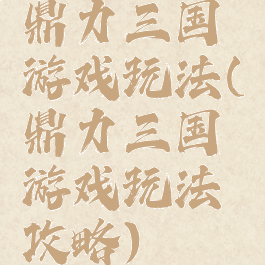 鼎力三国
游戏玩法(
鼎力三国
游戏玩法
攻略)